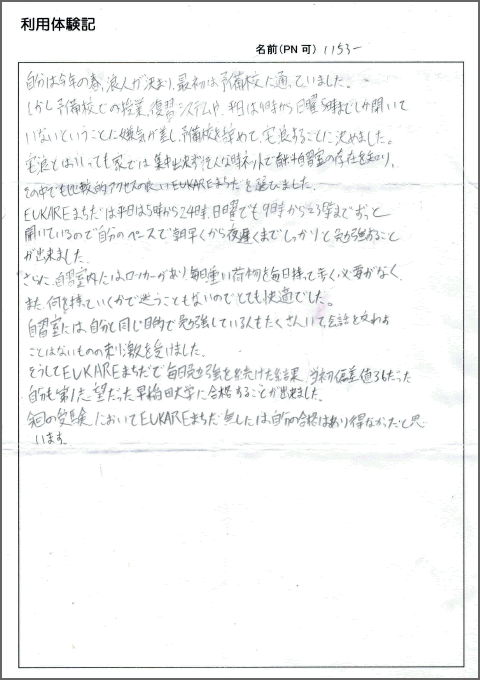 利用体験記
名前(PN可) いちろー
自分は今年の春、浪人が決まり、最初は予備校に通っていました。
しかし予備校での授業、復習システムや、平日は時から日曜時までしか開いて
いないということに嫌気が差し、予備校を辞めて、宅浪することに決めました。
宅浪とはいっても家では集中出来ずそんな時ネットで有料自習室の存在を知り、
その中でも比較的アクセスの良いEUKAREまちだを選びました。
EUKAREまちだは平日は5時から24時、日曜でも9時から23時までずっと
開いているので自分のペースで朝早くから夜遅くまでしっかりと勉強すること
が出来ました。
さらに、自習室内にはロッカーがあり毎日重い荷物を毎日持って歩く必要がなく、
また、何を持っていくかで迷うこともないのでとても快適でした。
自習室には、自分と同じ目的で勉強している人もたくさんいて会話を交わす
ことはないものの刺激を受けました。
そうしてEUKAREまちだで毎日勉強を続けた結果、当初偏差値36だった
自分も第1志望だった早稲田大学に合格することが出来ました。
今回の受験においてEUKAREまちだ無しには自分の合格はあり得なかったと思
います。